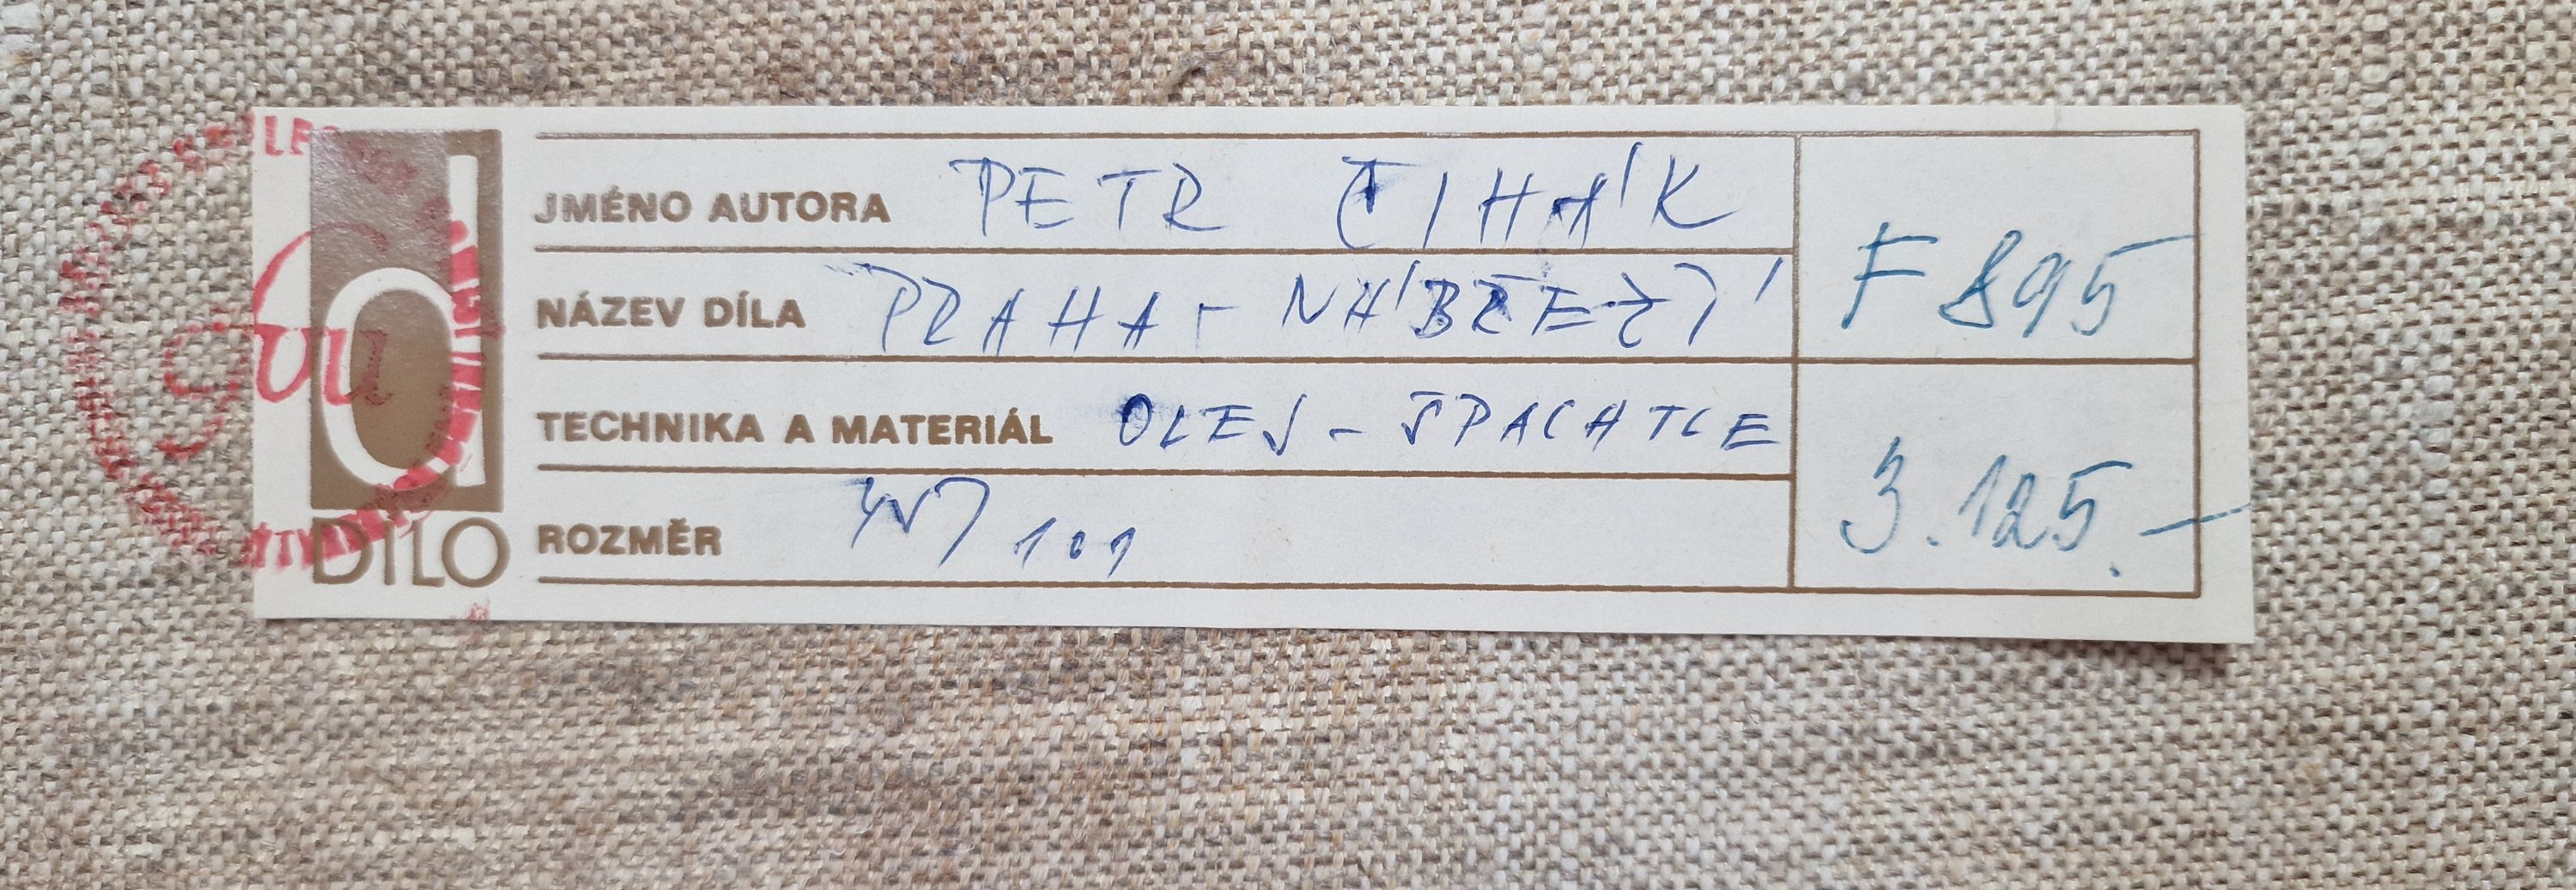 JMÉNO AUTORA PETR ČIHÁK
NÁZEV DÍLA PRAHA - NÁBŘEŽÍ
TECHNIKA A MATERIÁL OLEJ - ŠPACHTLE
ROZMĚR
F 895
3.125.-
DÍLO
čfvu